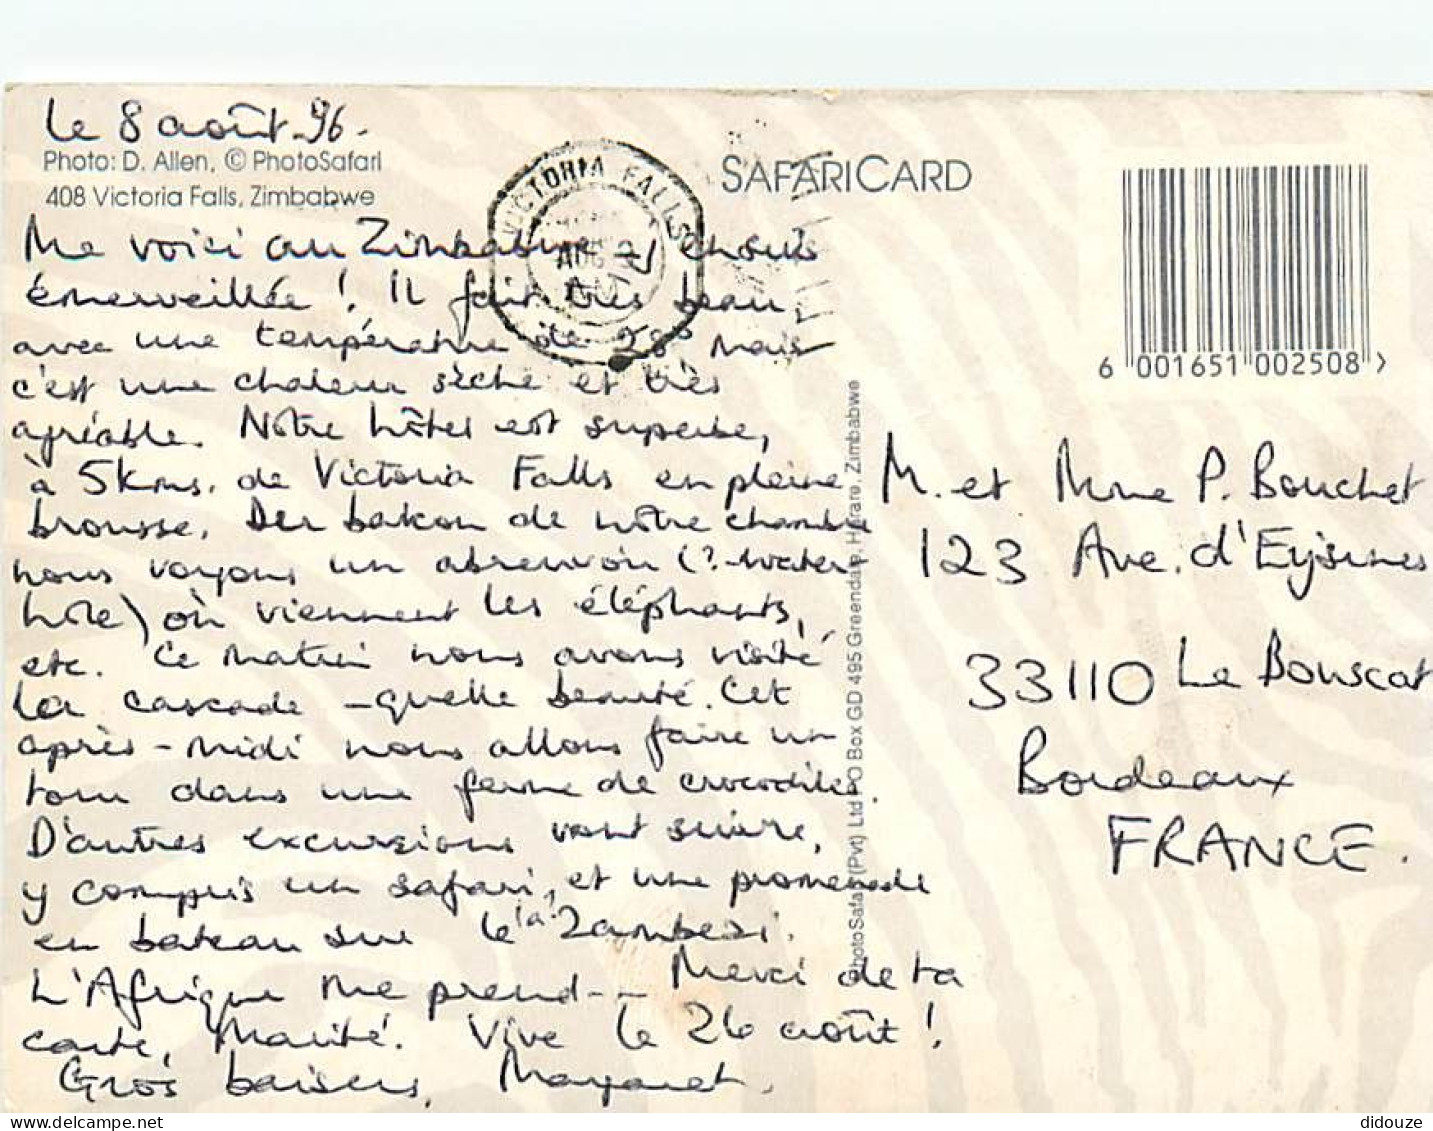 le 8 août 96.
Photo: D. Allen, © PhotoSafari
408 Victoria Falls, Zimbabwe
VICTORIA FALLS
AUG
SAFARICARD
6 001651 002508 >
Me voici au Zimbabwe et émerveillée ! Il fait très beau,
avec une température de 28° mais
c'est une chaleur sèche et très
agréable. Notre hôtel est superbe,
à 5kms. de Victoria Falls en pleine
brousse. Du balcon de notre chambre
nous voyons un abreuvoir (? water
hole) où viennent les éléphants,
etc. Ce matin nous avons visité
la cascade - quelle beauté. Cet
après-midi nous allons faire un
tour dans une ferme de crocodiles.
D'autres excursions vont suivre,
y compris un safari, et une promenade
en bateau sur le 'a? Zambezi.
L'Afrique me prend-- Merci de ta
carte, Maïté. Vive le 26 août !
Gros baisers, Margaret.
PhotoSafari (Pvt) Ltd PO Box GD 495 Greendale, Harare, Zimbabwe
M. et Mme P. Bouchet
123 Ave. d'Eysines
33110 Le Bouscat
Bordeaux
FRANCE.
didouze